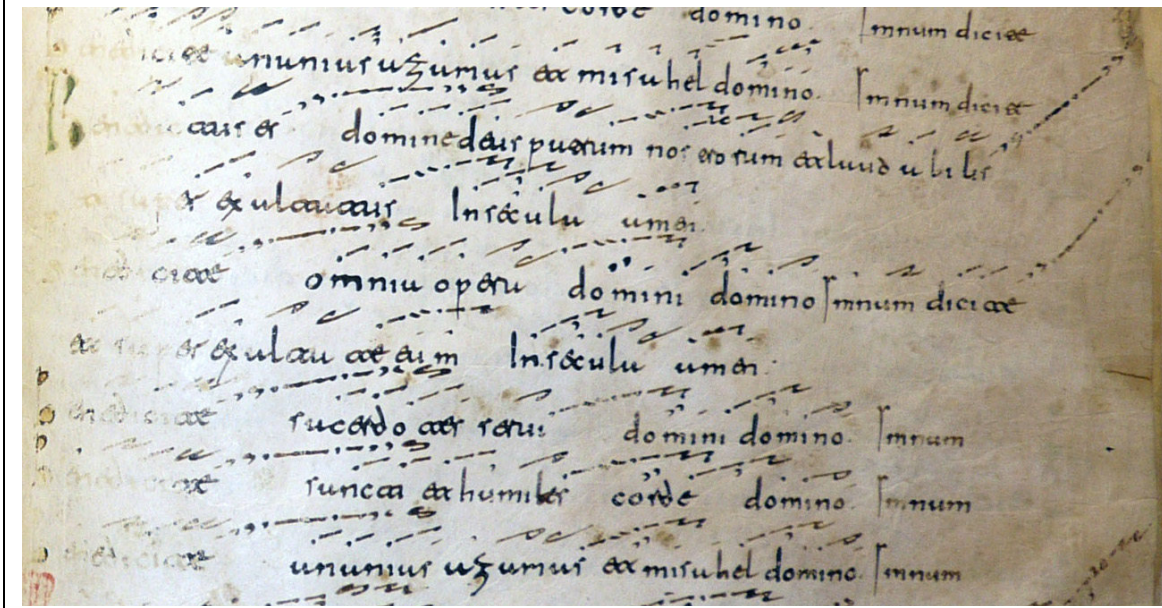 corde domino. Imnum dicite
dicite ananias azarias et misahel domino. Imnum dicite
Benedictus es domine deus patrum nostrorum et laudabilis
et superexaltatus In secula amen.
Benedicite omnia opera domini domino Imnum dicite
et superexaltate eum In secula amen.
Benedicite sacerdotes serui domini domino. Imnum
Benedicite sancti et humiles corde domino. Imnum
Benedicite ananias azarias et misahel domino. Imnum